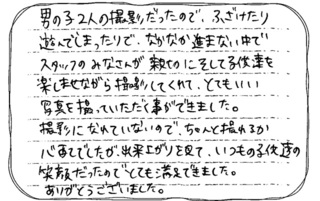 男の子2人の撮影だったので、ふざけたり
遊んでしまったりで、なかなか進まない中で
スタッフのみなさんが親切にそして子供達を
楽しませながら撮影してくれて、とてもいい
写真を撮っていただく事ができました。
撮影になれていないので、ちゃんと撮れるか
心配でしたが出来上がりを見て、いつもの子供達の
笑顔だったのでとても満足できました。
ありがとうございました。